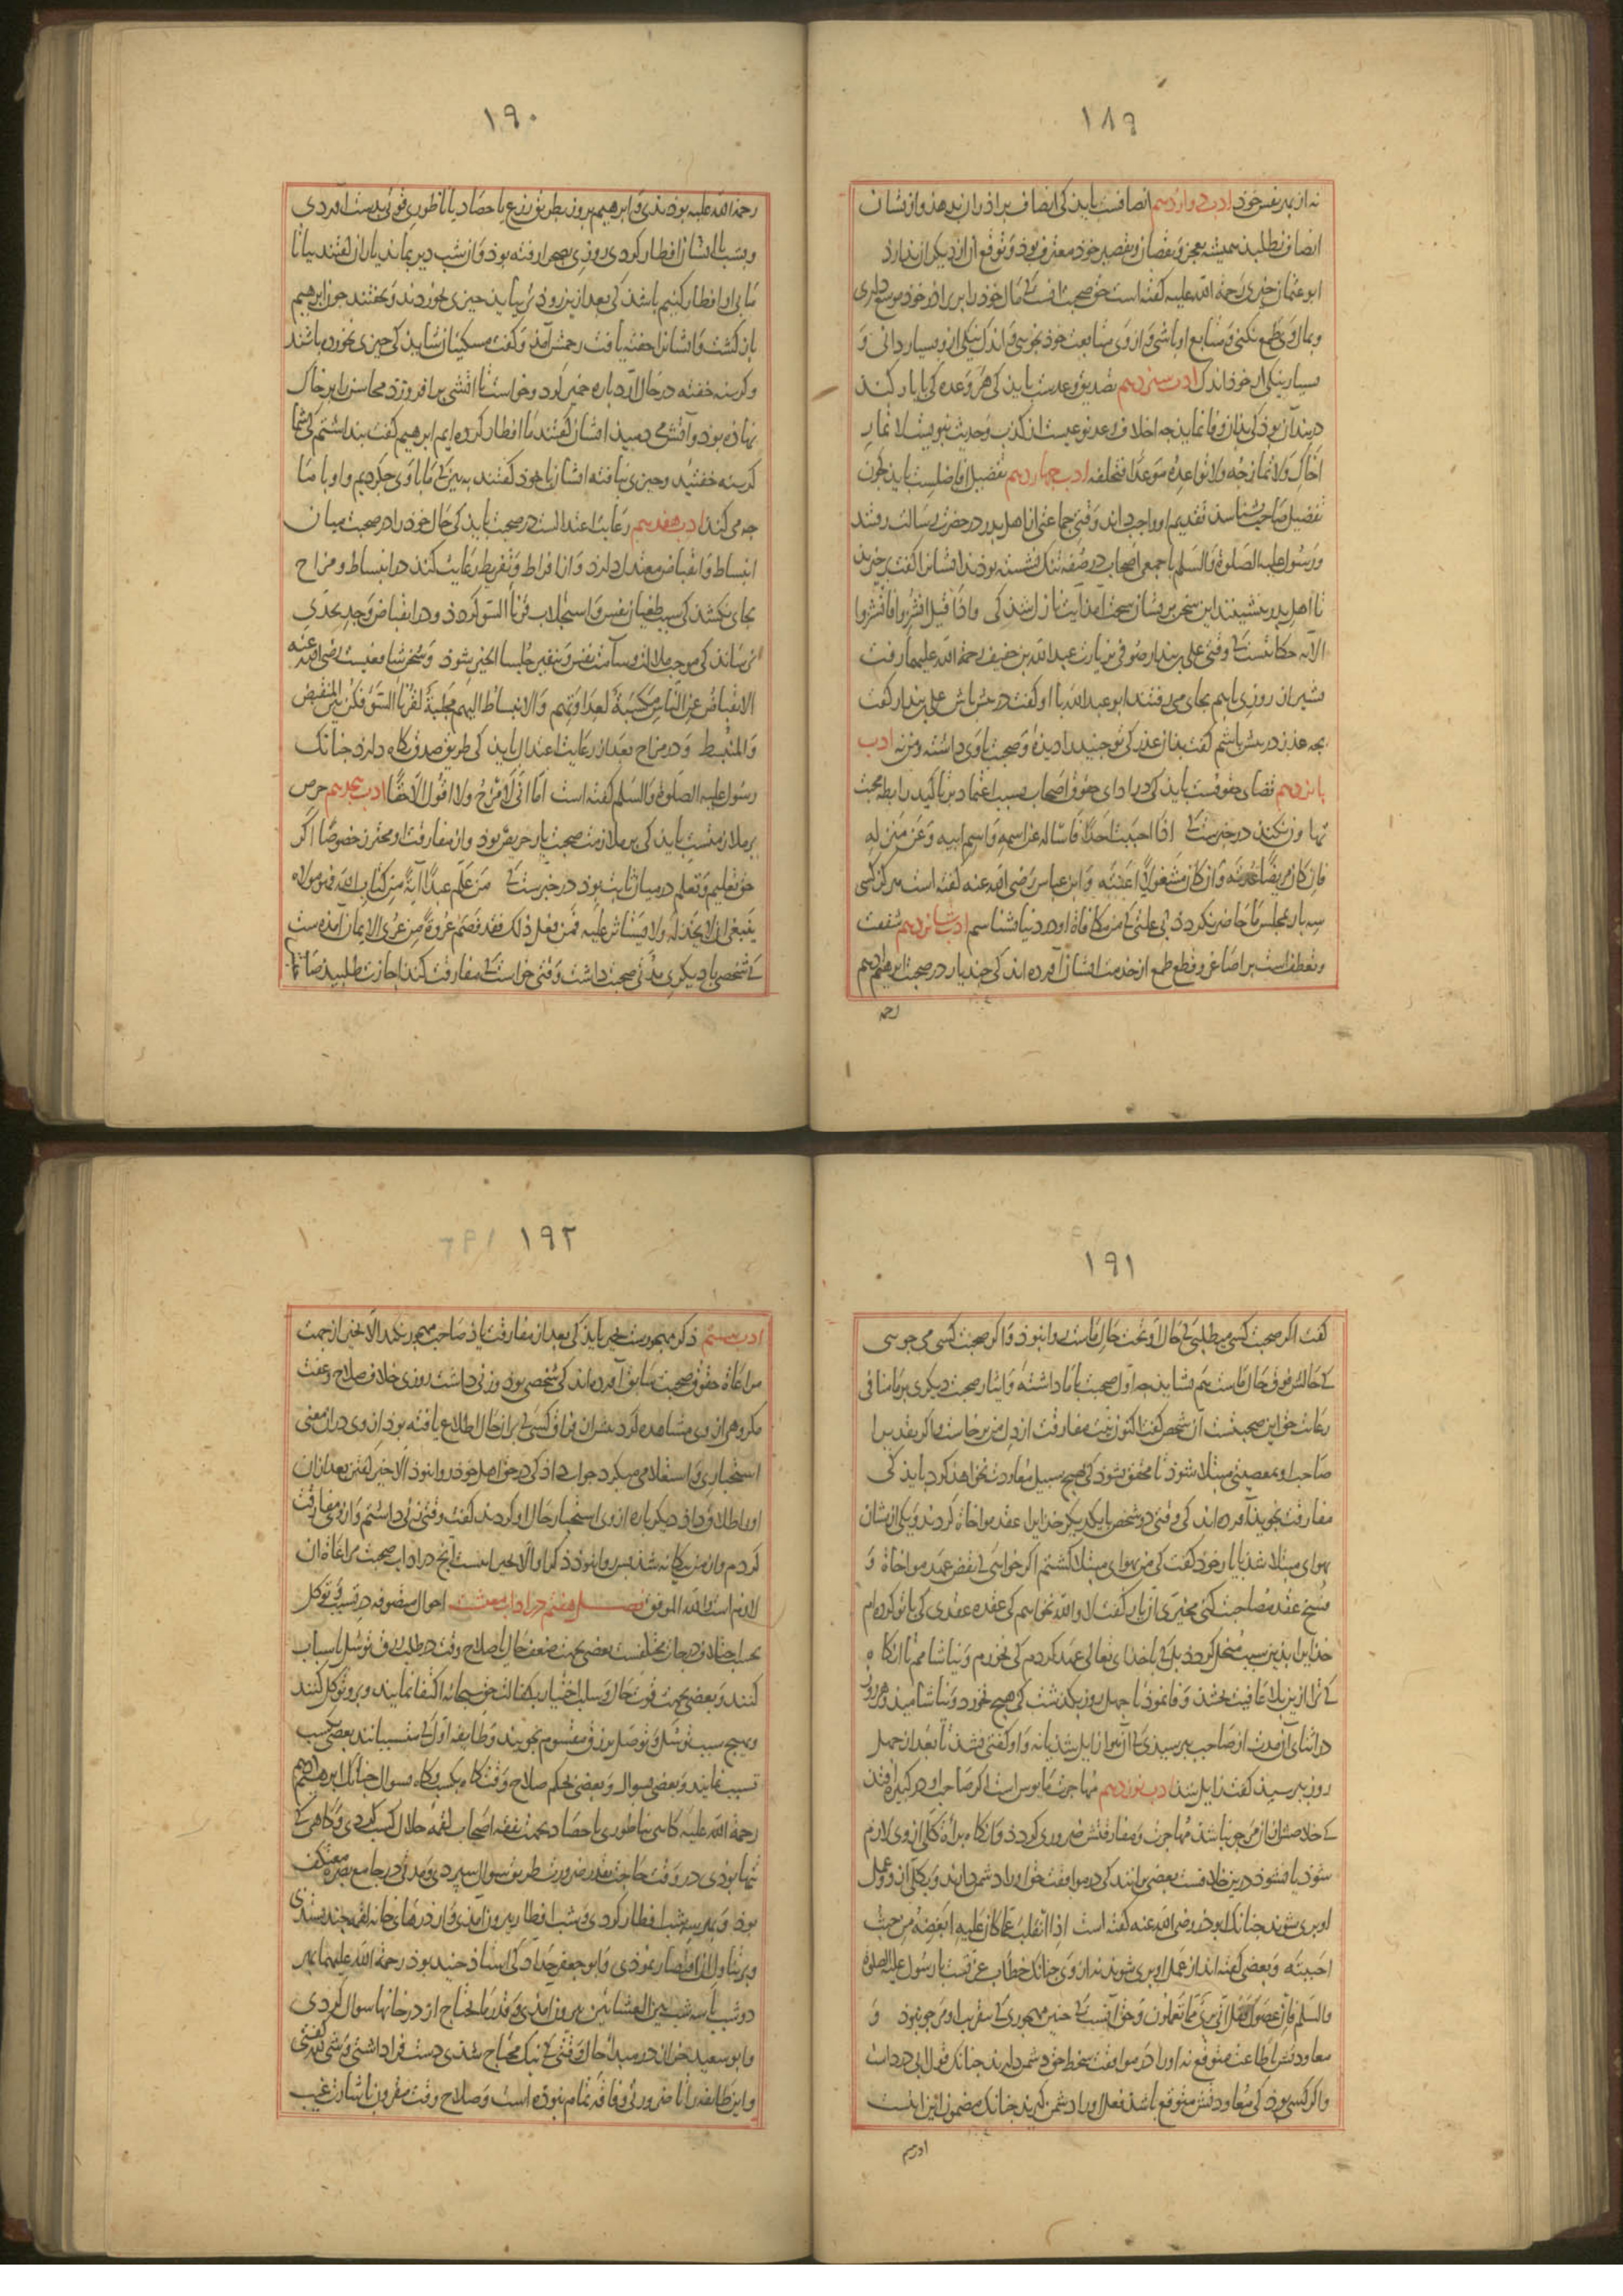 ۱۸۹
نه از بهر نفس خود ادب دوازدهم انصافست باید کی انصاف برادران بدهد و از نشان
انصاف نطلبد همیشه بعجز و نقصان و تقصیر خود معترف بود و توقع آن از دیگران ندارد
ابو عثمان حیری رحمة الله علیه کفته است حق صحبت آنست که مال خود را بر برادر خود موسع داری
و بمال وی طمع نکنی و متابع او باشی و از وی متابعت خود نجویی و اندک نیکی از و بسیار دانی و
بسیار نیکی از خود اندک ادب سیزدهم تصدیق وعدست باید کی هر وعده کی با یار کند
در بند آن بود کی بدان وفا نماید چه اخلاف وعد نوعیست از کذب و حدیث نبویست لا تمار
اخاک ولا تمازحه ولا تواعده موعدا فتخلفه ادب چهاردهم تفضیل افاضلست باید چون
تفضیل صاحب شناسد تقدیم او واجب داند وقتی جماعتی از اهل بدر در حضرت رسالت رفتند
و رسول علیه الصلوة والسلم با جمعی اصحاب در صفه تنک نشسته بودند ایشانرا کفت برخیزید
تا اهل بدر بنشینند این سخن بریشان سخت آمد این آیت نازل شد کی واذا قیل انشزوا فانشزوا
الآیه حکایتست که وقتی علی بندار صوفی بزیارت عبد الله بن خفیف رحمة الله علیهما رفت
بشیراز روزی باهم بجای می رفتند ابو عبد الله با او کفت در پیش باش علی بندار کفت
بچه عذر در پیش باشم کفت بدان عذر کی تو جنید را دیدۀ و صحبت با وی داشته و من نه ادب
پانزدهم قضای حقوقست باید کی در ادای حقوق اصحاب بسبب اعتماد بر تاکید رابطه محبت
تهاون نکند در خبرست که اذا احببت احدا فاساله عن اسمه واسم ابیه وعن منزله
فان کان مریضا عدته وان کان مشغولا اعنته و ابن عباس رضی الله عنه کفته است هر کز کسی
سه بار بمجلس ما حاضر نکردد بی علتی که من مکافاة او در دنیا شناسم ادب شانزدهم شفقت
و تعطف است بر اصاغر و قطع طمع از خدمت ایشان آورده اند کی چند یار در صحبت ابرهیم ادهم
رحمة
۱۹۰
رحمة الله علیه بودندی و ابرهیم بروز بطریق زرع یا حصاد یا ناطوری قوتی بدست آوردی
و بشب با ایشان افطار کردی روزی بصحرا رفته بود و از شب دیر بماند یاران کفتند بیا تا
ما بی او افطار کنیم باشد کی بعد ازین زودتر بیاید چیزی بخوردند و بخفتند چون ابرهیم
باز کشت و ایشانرا خفته یافت رحمتش آمد و کفت مسکینان شاید کی چیزی نخورده باشند
و کرسنه خفته در حال آرد باره خمیر کرد و خواست تا آتشی برافروزد محاسن را بر خاک
نهاده بود و آتش می دمید ایشان کفتند ما افطار کرده ایم ابرهیم کفت بنداشتم کی شما
کرسنه خفتید و چیزی نیافته ایشان با خود کفتند ببین که ما با وی چکردیم و او با ما
چه می کند ادب هفدهم رعایت اعتدالست در صحبت باید کی حال خود را در صحبت میان
انبساط و انقباض معتدل دارد و از افراط و تفریط رعایت کند در انبساط و مزاح
بجای نکشد کی سبب طغیان نفس و استجلاب قرناء السو کردد و در انقباض و جد بحدی
نرساند کی موجب ملالت و سآمت نفس و تنفیر جلسا الخیر شود و سخن شافعیست رضی الله عنه
الانقباض عن الناس مکسبة لعداوتهم والانبساط الیهم مجلبة لقرناء السو فکن بین المنقبض
والمنبسط و در مزاح بعد از رعایت اعتدال باید کی طریق صدق نکاه دارد چنانک
رسول علیه الصلوة والسلم کفته است اما انی لامزح ولا اقول الا حقا ادب هجدهم حرص
بر ملازمتست باید کی بر ملازمت صحبت یار حریص بود و از مفارقت او محترز خصوصا اکر
حق تعلیم و تعلم در میان ثابت بود در خبرست که من علم عبدا آیة من کتاب الله فهو مولاه
ینبغی ان لا یخذله ولا یستاثر علیه فمن فعل ذلک فقد قصم عروة من عری الایمان آمده است
که شخصی با دیکری مدتی صحبت داشت وقتی خواست که مفارقت کند اجازت طلبید صاحب
۱۹۱
کفت اکر صحبت کسی میطلبی که حال او تحت حال ماست روا نبود و اکر صحبت کسی می جویی
که حالش فوق حال ماست هم نشاید چه اول صحبت با ما داشتۀ و ایثار صحبت دیکری بر ما منافی
رعایت حق این صحبتست آن شخص کفت اکنون نیت مفارقت از دل من برخاست و اکر بقدیرا
صاحب او بمعصیتی مبتلا شود تا محقق نشود کی بهیچ سبیل معاودت نخواهد کرد باید کی
مفارقت نجوید آورده اند کی وقتی دو شخص با یکدیکر خدایرا عقد مواخاة کردند و یکی ازیشان
بهوای مبتلا شد با یار خود کفت کی من بهوای مبتلا کشتم اکر خواهی که نقض عهد مواخاة و
فسخ عقد مصاحبت کنی مخیری آن یار کفت لا والله نخواهم کی عقدۀ عقدی کی با تو کرده ام
خدایرا بدین سبب منحل کردد بل که با خدای تعالی عهد کردم کی نخورم و نیاشامم تا آنکاه
که ترا ازین بلا عافیت بخشد و وفا نمود تا چهل روز بکذشت کی هیچ نخورد و نیاشامید و هر روز
در اثنای آن مدت از صاحب پرسیدی که آن هوا زایل شد یا نه و او کفتی نشد تا بعد از چهل
روز بپرسید کفت زایل شد ادب نوزدهم مهاجرت مایوس است اکر صاحب او در کبیره افتد
که خلاصش از آن مرجو نباشد مهاجرت و مفارقتش ضروری کردد و آنکاه برأة کلی از وی لازم
شود یا نشود درین خلافست بعضی برانند کی در موافقت حق او را دشمن دارند و بکلی از و و عمل
او بری شوند چنانک ابوذر رضی الله عنه کفته است اذا انقلب عما کان علیه ابغضه من حیث
احببته و بعضی کفته اند از عمل او بری شوند نه از وی چنانک خطاب عزتست با رسول علیه الصلوة
والسلم فان عصوک فقل انی بری مما تعملون و حق آنست که چنین مهجوری که مقرب او مرجو نبود و
معاودتش باطاعت متوقع نه او را در موافقت سخط حق دشمن دارند چنانک قول ابی درداست
و اکر کسی بود کی معاودتش متوقع باشد فعل او را دشمن کیرند چنانک مضمون این آیتست
ادب بیستم
۱۹۲
ادب بیستم ذکر مهجورست بخیر باید کی بعد از مفارقت یاد صاحب مهجور نکند الا بخیر از جهت
مراعاة حقوق صحبت سابق آورده اند کی شخصی بود و زنی داشت روزی خلاف صلاح و عفت
مکروهی از وی مشاهده کرد بعد از فراق کسی که بر آن حال اطلاع یافته بود از وی در آن معنی
استخباری و استعلامی میکرد جواب داد کی در حق اهل خود روا نبود الا خیر کفتن بعد از آن
او را طلاق داد دیکر باره از وی استخبار حال او کردند کفت وقتی زنی داشتم و از وی مفارقت
کردم و از من بیکانه شد بس روا نبود ذکر او الا بخیر اینست آنچ در آداب صحبت مراعاة آن
لازم است والله الموفق فصل هفتم در آداب معیشت احوال متصوفه در تسبب و توکل
بحسب اختلاف درجات مختلفست بعضی بجهت ضعف حال یا صلاح وقت در طلب رزق توسل باسباب
کنند و بعضی بجهت قوت حال و سلب اختیار بکفالت حق سبحانه اکتفا نمایند و برو توکل کنند
و بهیچ سبب توسل و توصل برزق مقسوم نجویند و طایفه اول که متسببانند بعضی بکسب
تسبب نمایند و بعضی بسوال و بعضی بحکم صلاح وقت کاه بکسب و کاه بسوال چنانک ابرهیم ادهم
رحمة الله علیه کاهی بناطوری یا حصاد بجهت نفقه اصحاب لقمۀ حلال کسب کردی و کاهی که
تنها بودی در وقت حاجت بقدر ضرورت طریق سوال سپردی و مدتی در جامع بصره معتکف
بود و بهر سه شب افطار کردی و شب افطار بیرون آمدی و از درهای خانه لقمه چند بستدی
و بر تناول آن اقتصار نمودی و ابو جعفر حداد کی استاذ جنید بود رحمة الله علیهما بهر
دو شب یا سه شب بین العشائین بیرون آمدی و قدر ما یحتاج از در خانها سوال کردی
و ابو سعید خراز در مبدأ حال وقتی که نیک محتاج شدی دست فرا داشتی و شیء لله کفتی
و این طایفه را تا ضرورتی و فاقه تمام نبوده است و صلاح وقت مقرون باشارت غیب